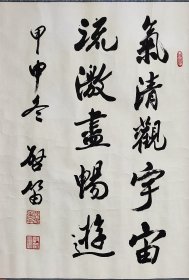 氣清觀宇宙
流激盡暢遊
甲申冬 啓笛